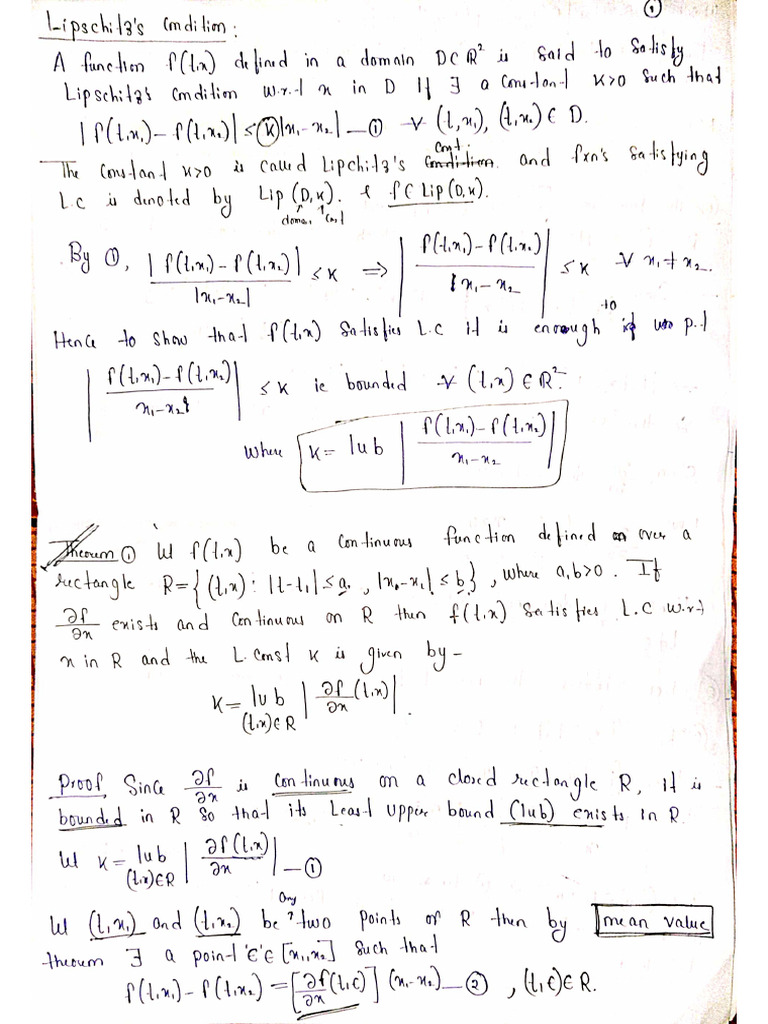 ①
Lipschitz's Condition :
A function f(t,x) defined in a domain D⊂R² is said to satisfy
Lipschitz's Condition w.r.t x in D If ∃ a Constant K>0 such that
|f(t,x₁)-f(t,x₂)| ≤ K|x₁-x₂| — ① ∀ (t,x₁), (t,x₂) ∈ D.
The Constant K>0 is called Lipchitz's Const and fxn's satisfying
L.C is denoted by Lip (D,K). & f∈ Lip (D,K).
domain Const
By ①, |f(t,x₁)-f(t,x₂)| / |x₁-x₂| ≤ K ⟹ | f(t,x₁)-f(t,x₂) / x₁-x₂ | ≤ K ∀ x₁≠x₂.
Hence to show that f(t,x) satisfies L.C it is enough to p.t
| f(t,x₁)-f(t,x₂) / x₁-x₂ | ≤ K ie bounded ∀ (t,x) ∈ R².
where K = lub | f(t,x₁)-f(t,x₂) / x₁-x₂ |
Theorum ① let f(t,x) be a continuous function defined over a
rectangle R={(t,x): |t-t₁|≤a, |x₀-x₁|≤b}, where a,b>0. If
∂f/∂x exists and continuous on R then f(t,x) satisfies L.C w.r.t
x in R and the L.const K is given by-
K= lub (t,x)∈R | ∂f/∂x (t,x) |.
Proof, Since ∂f/∂x is continuous on a closed rectangle R, it is
bounded in R so that its Least upper bound (lub) exists in R.
let K= lub (t,x)∈R | ∂f(t,x)/∂x | — ①
let (t,x₁) and (t,x₂) be any two points of R then by mean value
theorum ∃ a point 'ϵ'∈[x₁,x₂] such that
f(t,x₁)-f(t,x₂) = [∂f/∂x (t,ϵ)] (x₁-x₂) — ② , (t,ϵ)∈R.